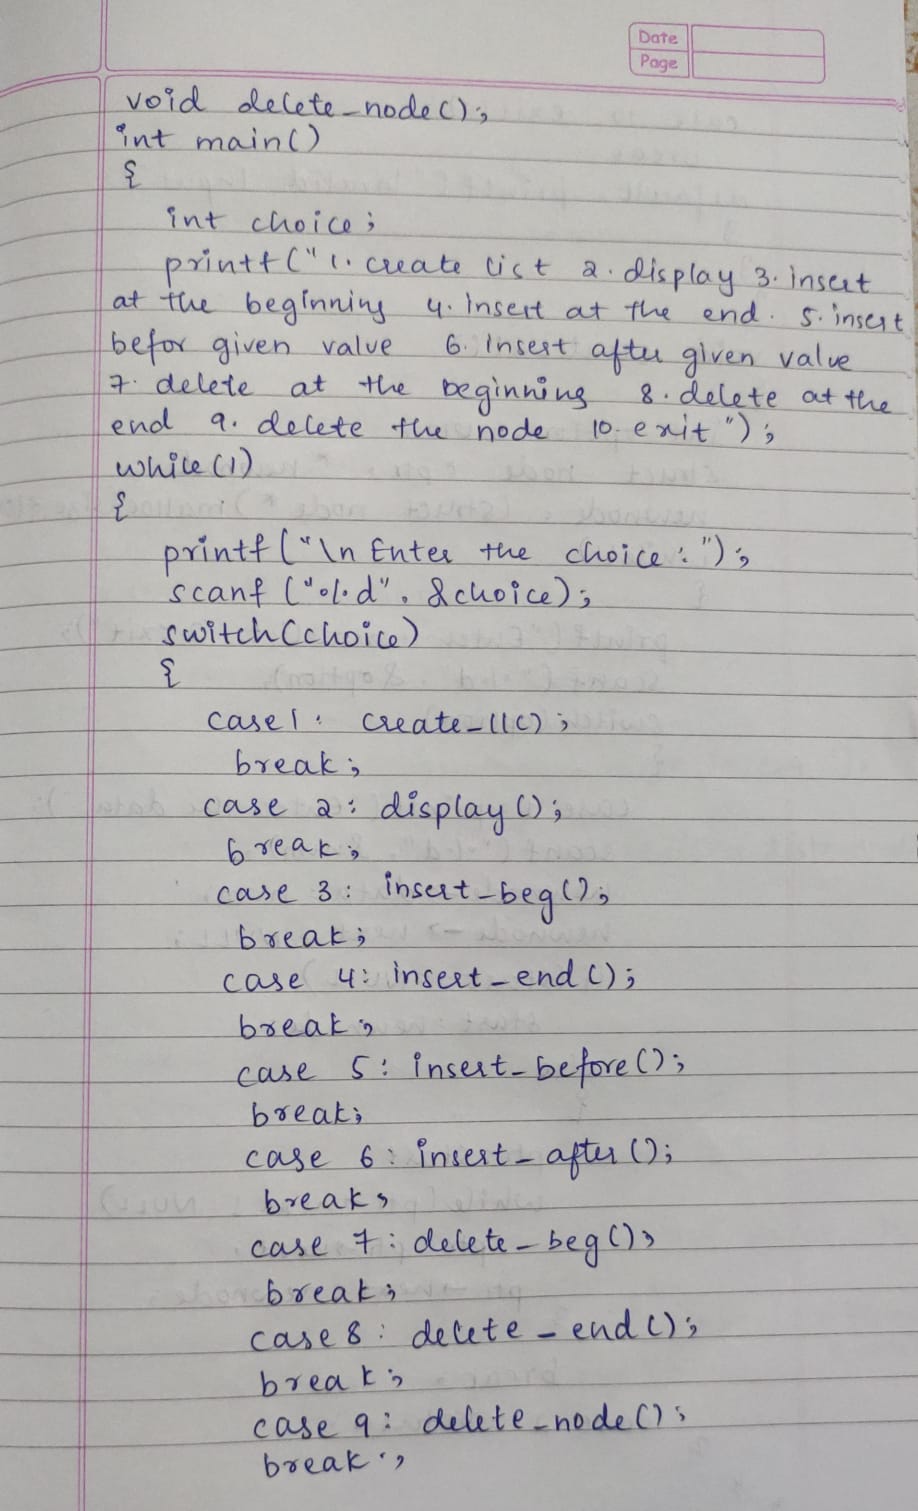 Date
Page
void delete_node();
int main()
{
int choice;
printf("1. create list 2. display 3. insert
at the beginning 4. insert at the end. 5. insert
befor given value 6. insert after given value
7. delete at the beginning 8. delete at the
end 9. delete the node 10. exit");
while(1)
{
printf("\n Enter the choice:");
scanf("%d", &choice);
switch(choice)
{
case 1: create_ll();
break;
case 2: display();
break;
case 3: insert_beg();
break;
case 4: insert_end();
break;
case 5: insert_before();
break;
case 6: insert_after();
break;
case 7: delete_beg();
break;
case 8: delete_end();
break;
case 9: delete_node();
break;